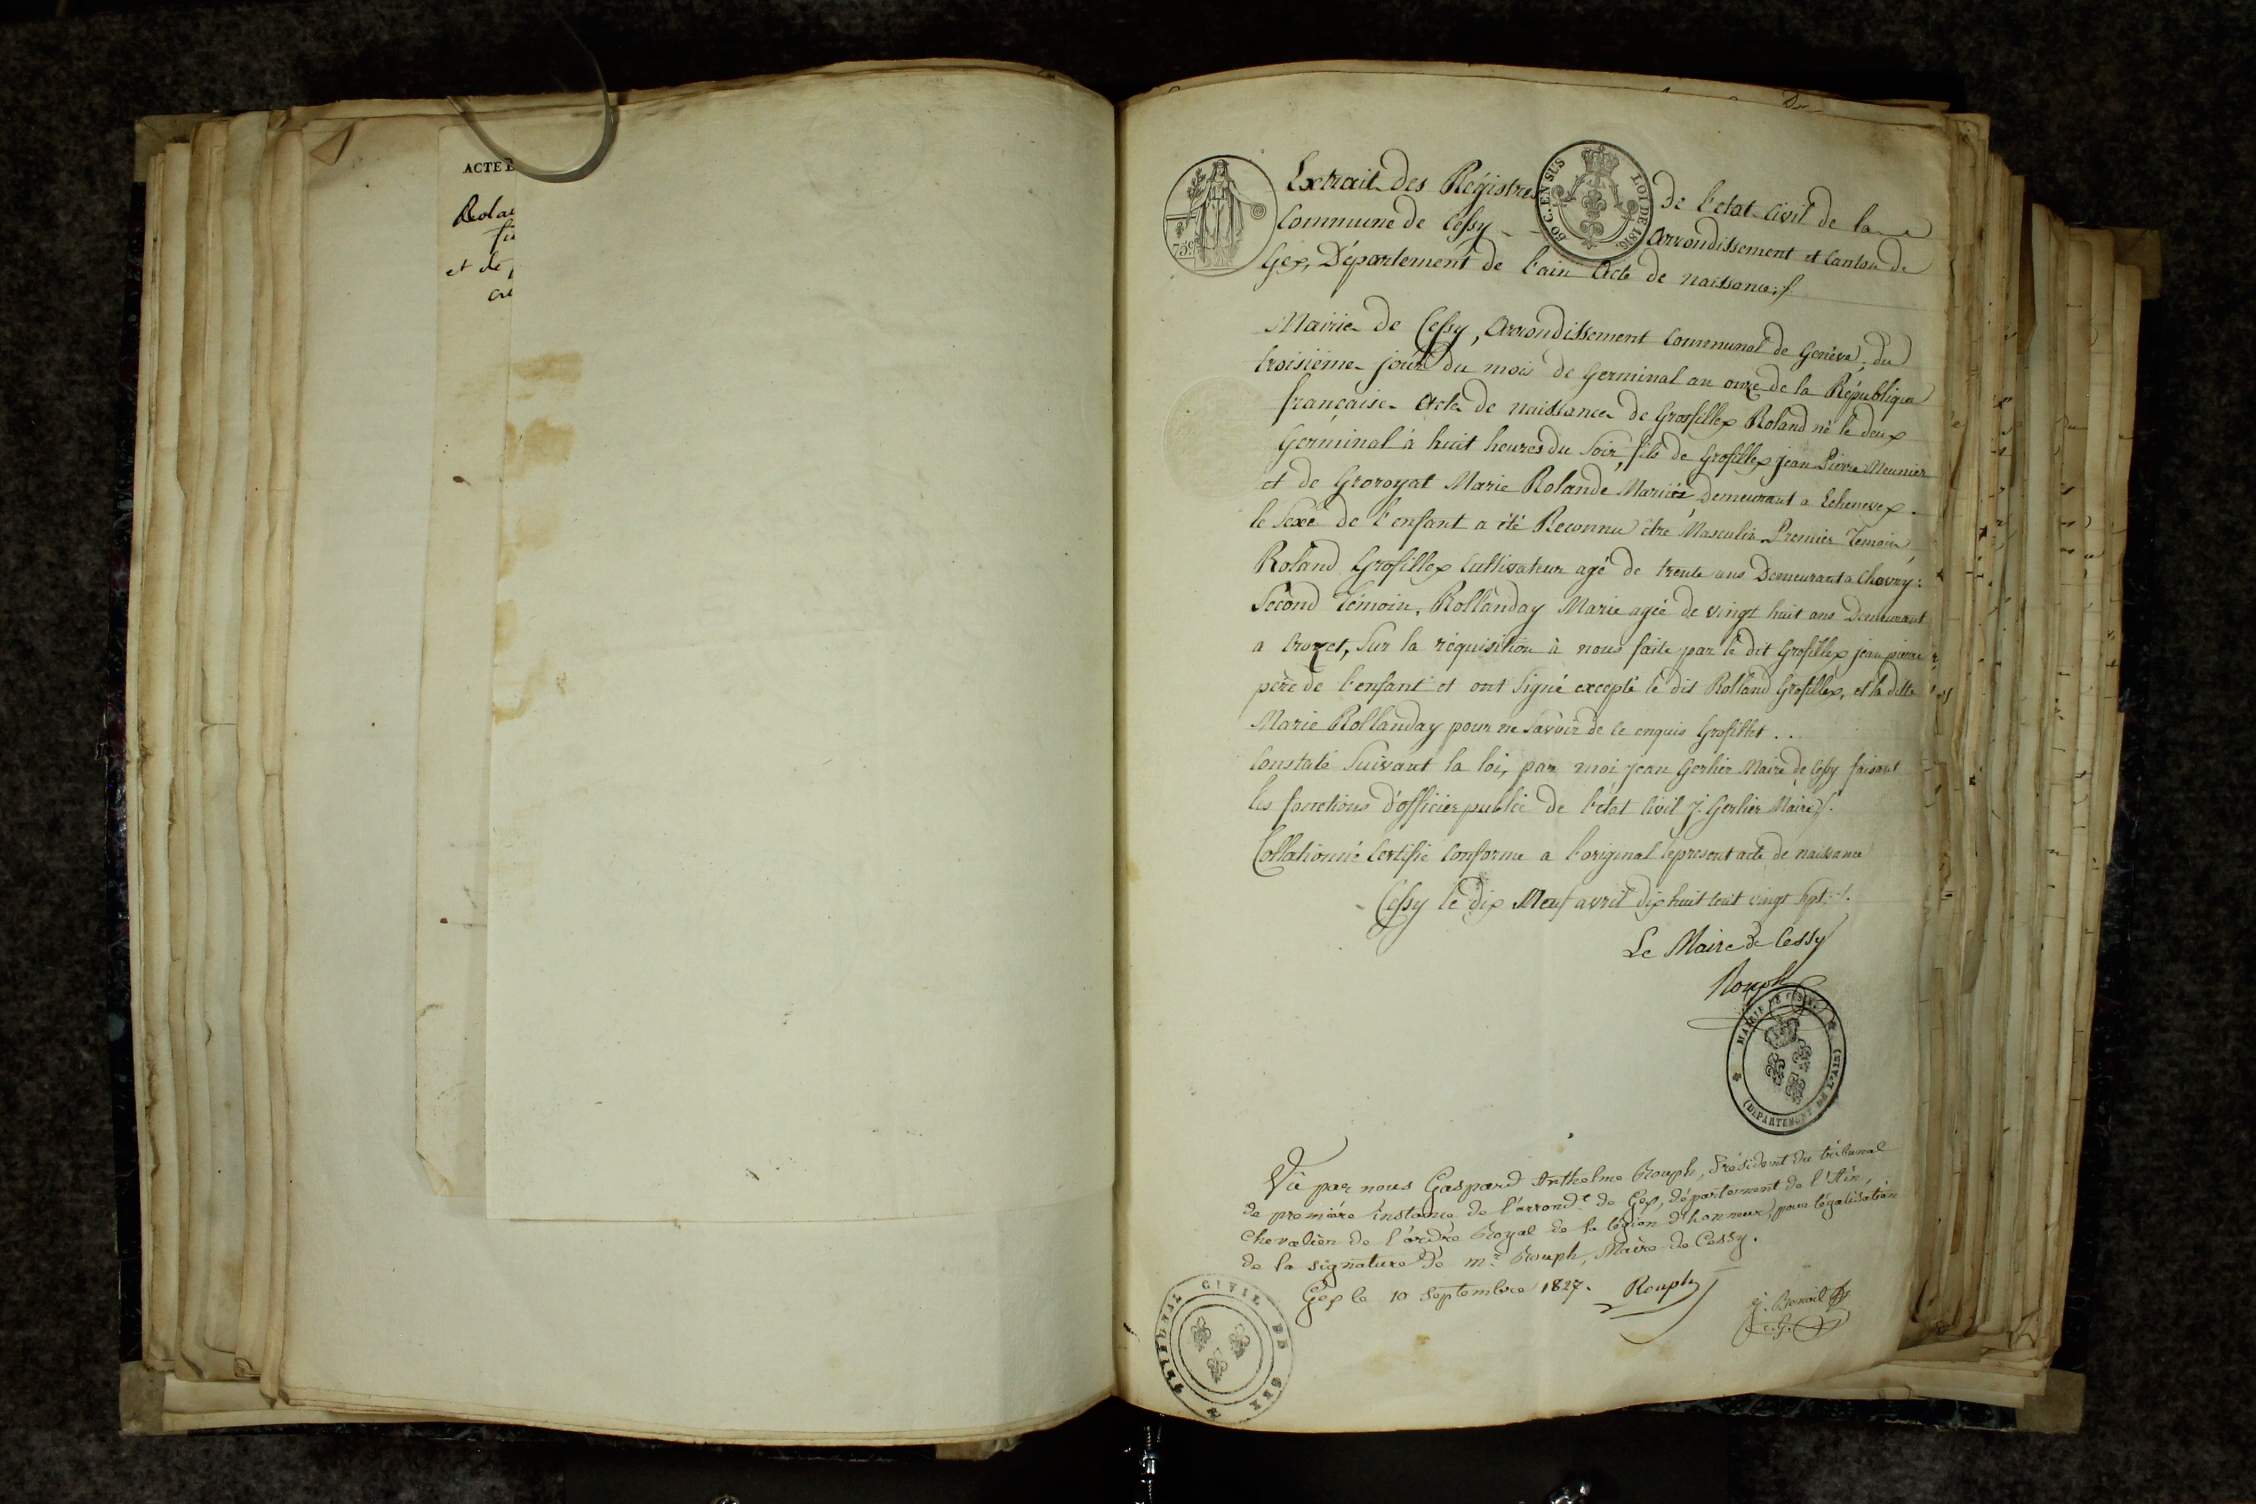 ACTE
Rola
et de
Extrait des Régistres de l'etat Civil de la
Commune de Cessy Arrondissement et Canton de
Gex, Département de l'ain Acte de naissance
75c
50 C. EN SUS
LOI DE 1816.
Mairie de Cessy, Arrondissement Communal de Genève, du
troisième jour du mois de Germinal an onze de la République
française. Acte de naissance de Grosfillex Roland né le deux
Germinal à huit heures du Soir, fils de Grosfillex Jean Pierre Meunier
et de Groroyat Marie Rolande Mariés Demeurant a Echenevex.
le Sexe de l'enfant a été Reconnu être Masculin. Premier Temoin
Roland Grofillex Cultivateur agé de trente ans Demeurant a Chevry:
Second témoin, Rollanday Marie agée de vingt huit ans Demeurant
a Crozet, Sur la réquisition à nous faite par le dit Grofillex jean pierre
père de l'enfant et ont Signé excepté le dit Rolland Grofillex, et la ditte
Marie Rollanday pour ne Savoir de ce enquis Grofillet ..
Constaté Suivant la loi, par moi Jean Gerlier Maire de Cessy faisant
les fonctions d'officier public de l'état Civil J. Gerlier Maire
Collationné Certifié Conforme a l'original le present acte de naissance
Cessy le dix Neuf avril dix huit cent vingt Sept
Le Maire de Cessy
Rouph
MAIRIE DE CESSY
(DEPARTEMENT DE L'AIN)
Vû par nous Gaspard Anthelme Rouph, Président du tribunal
de première instance de l'arrond.t de Gex, département de l'Ain,
Chevalier de l'ordre Royal de la légion d'honneur, pour légalisation
de la signature de m.r Rouph, Maire de Cessy.
Gex le 10 Septembre 1827. Rouph
TRIBUNAL CIVIL DE GEX